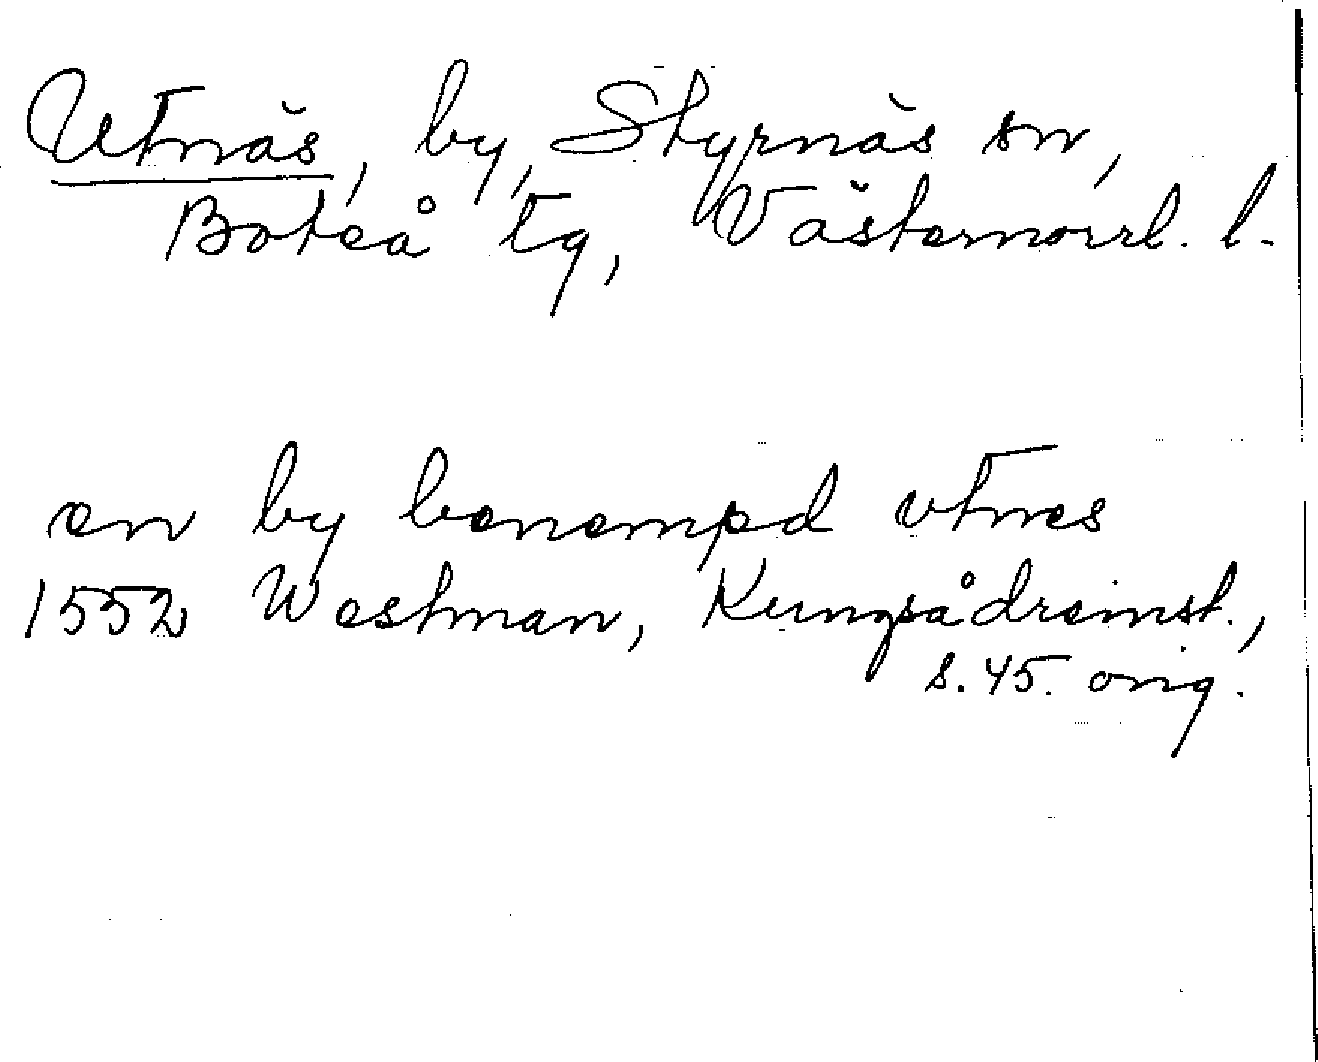 Utnäs, by, Styrnäs sn,
Boteå tg, Västernorrl. l.
en by benempd vtnes
1552 Westman, Kungsådreinst.,
s. 45. orig.